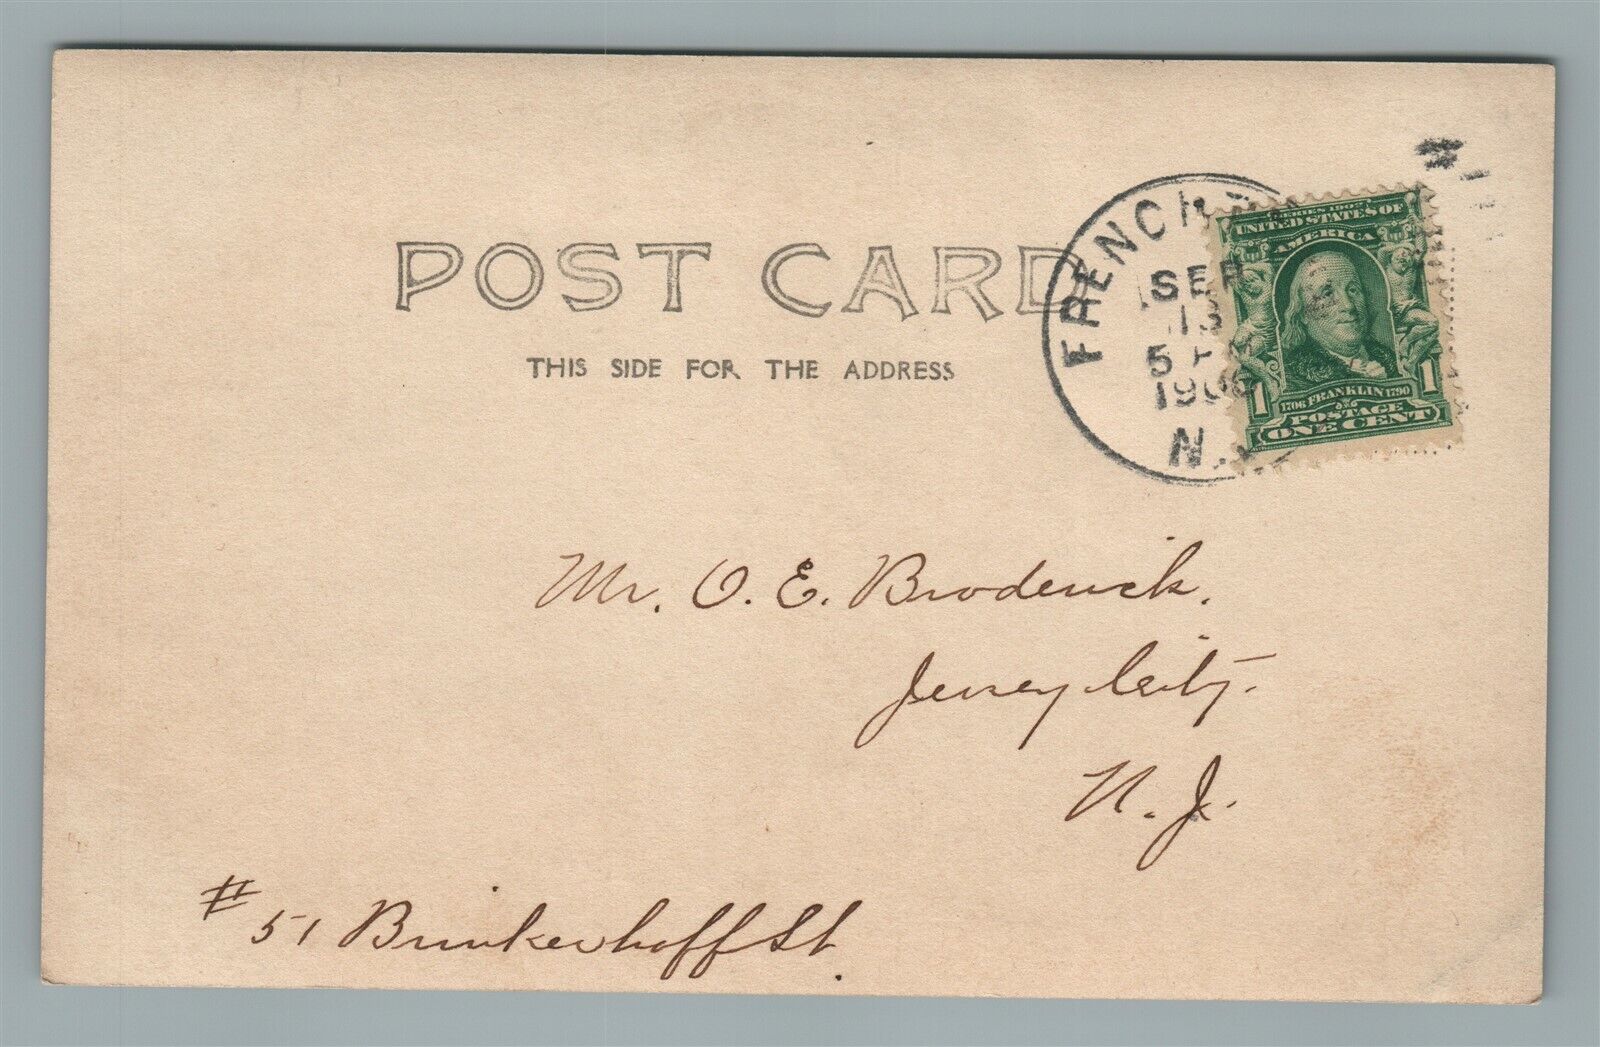 POST CARD
THIS SIDE FOR THE ADDRESS
FRENCH
SEP
13
5 P
1906
N.J.
SERIES 1902
UNITED STATES OF
AMERICA
1706 FRANKLIN 1790
1 POSTAGE 1
ONE CENT
Mr. O. E. Broderick.
Jersey City.
N. J.
# 51 Brinkerhoff St.